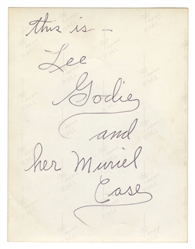 this is —
Lee
Godie
and
her Muriel
Case